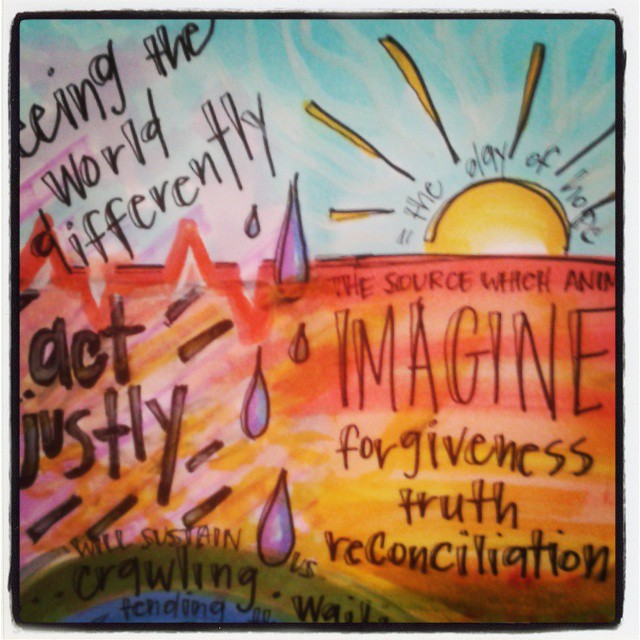 eeing the
world
differently
= the day of hope
THE SOURCE WHICH ANIM
act
justly
IMAGINE
forgiveness
truth
reconciliation
WILL SUSTAIN us
crawling
tending